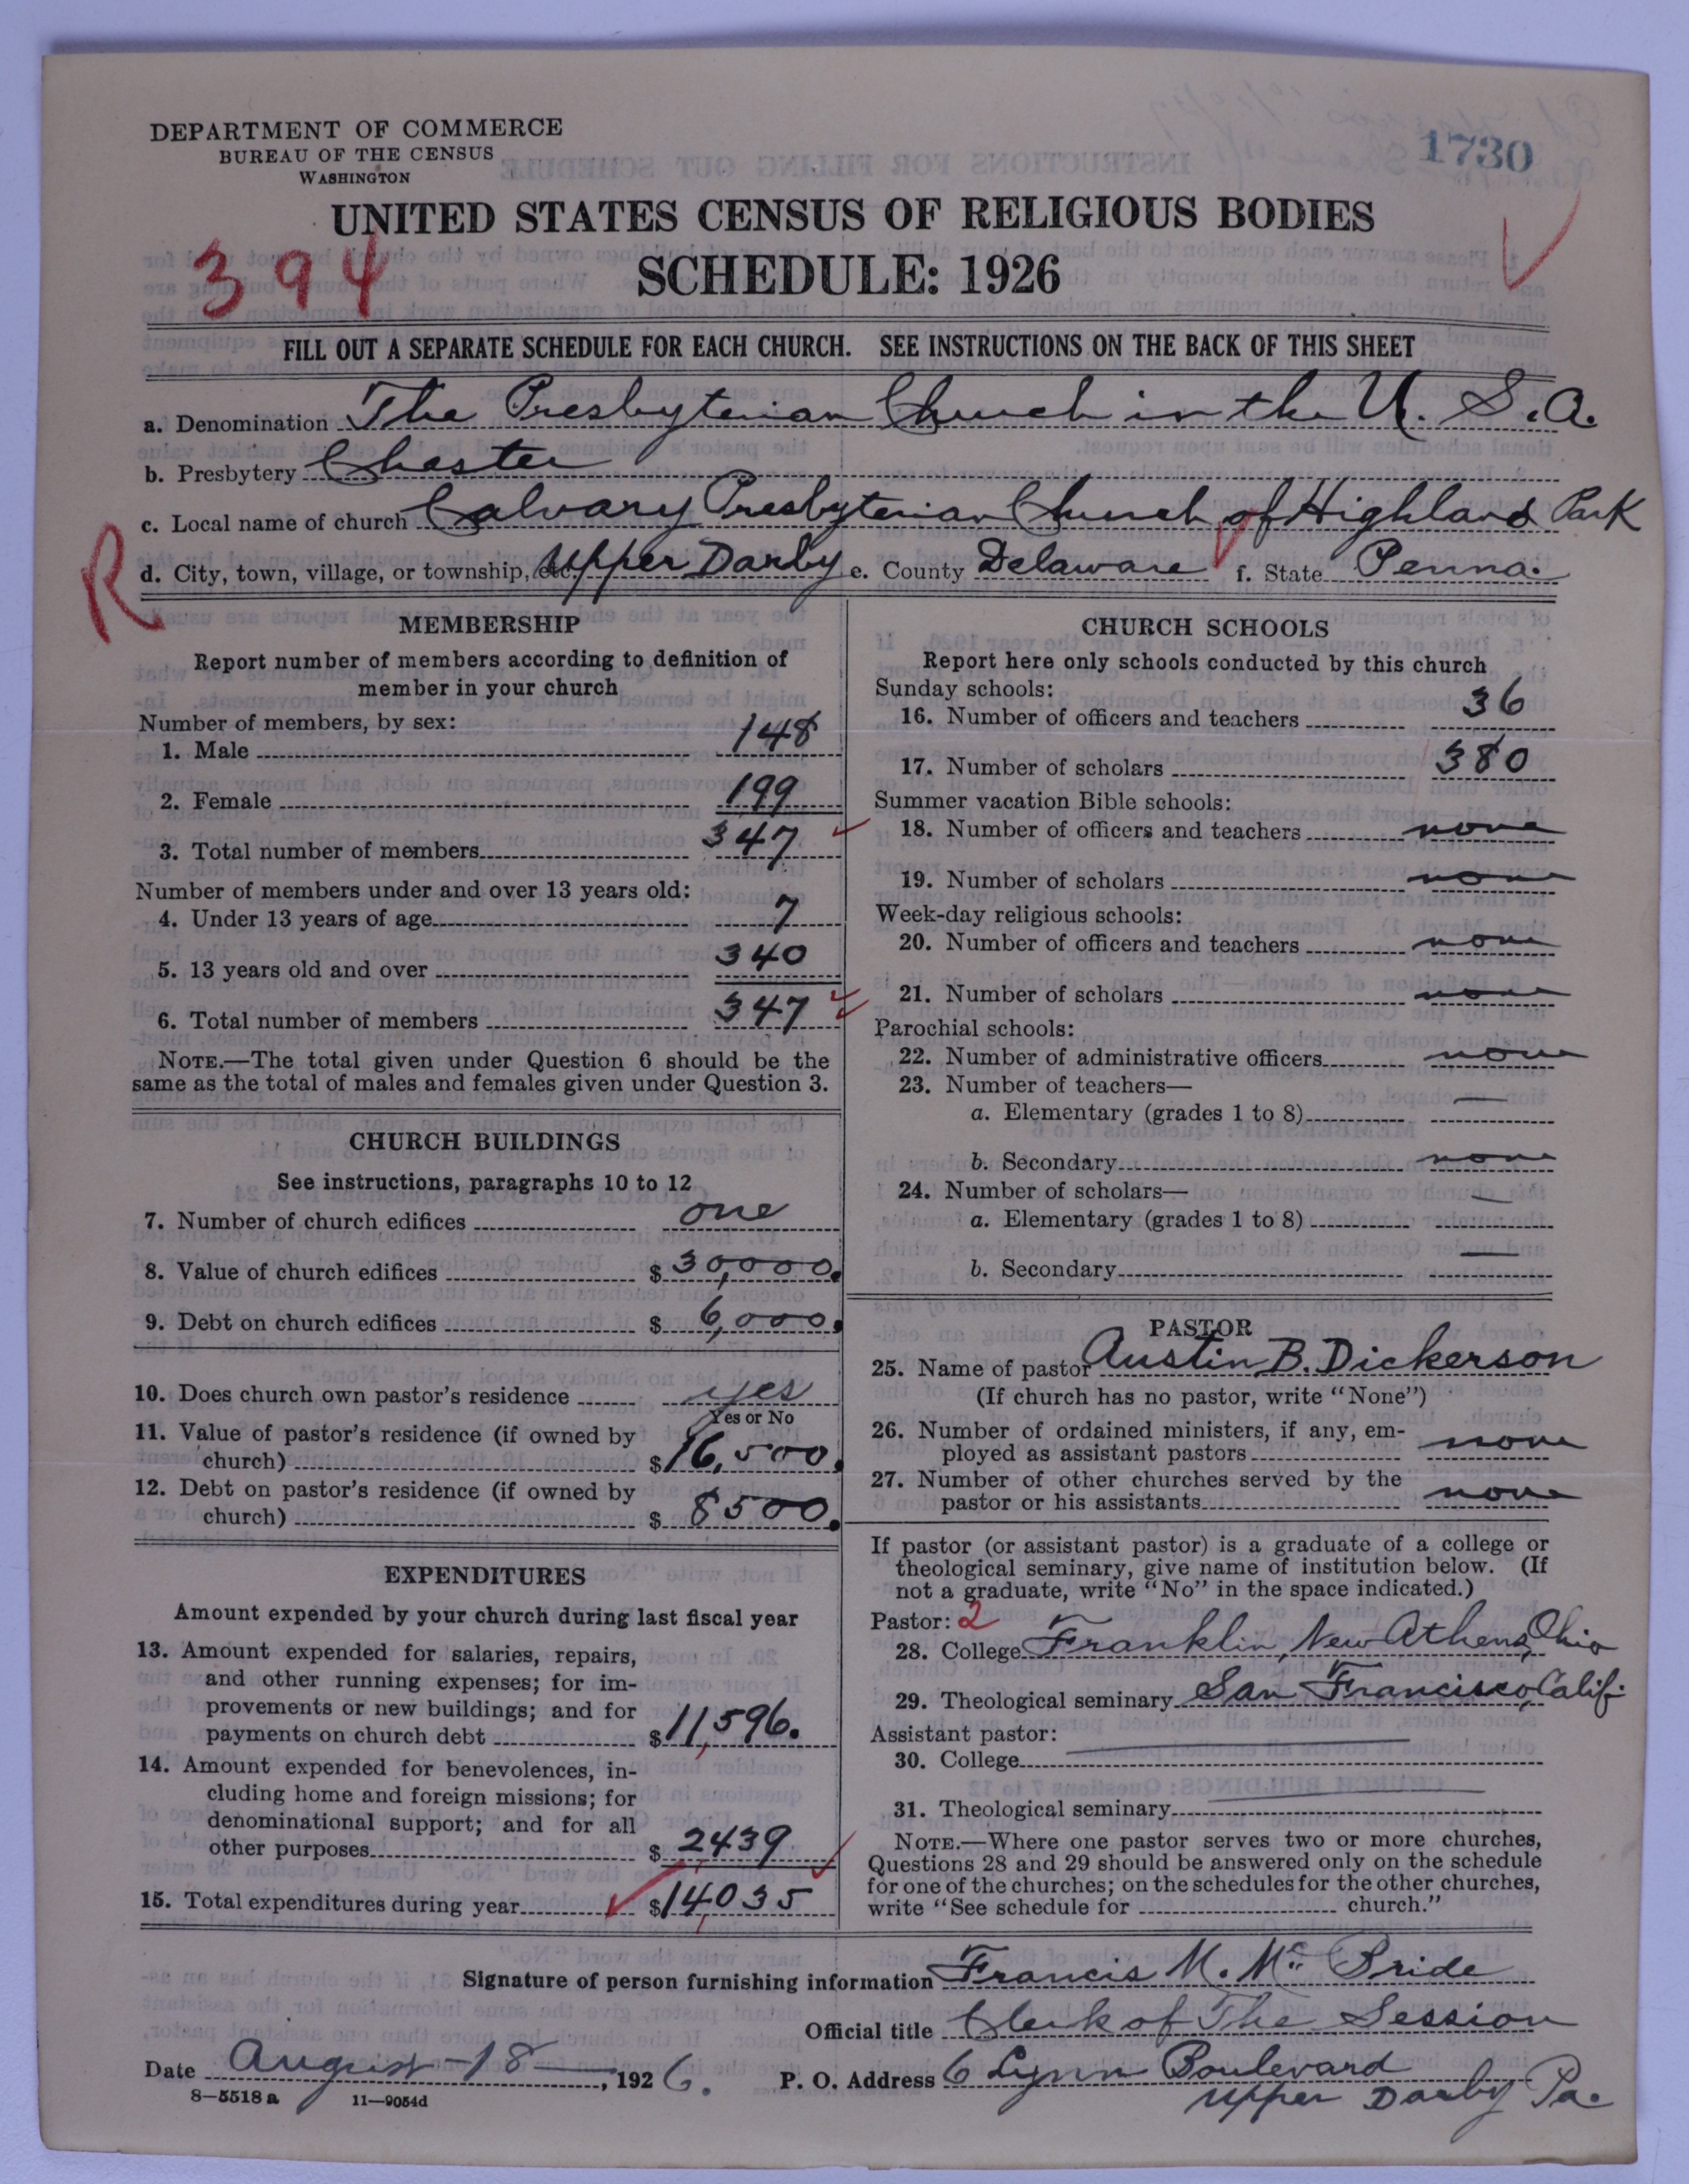 DEPARTMENT OF COMMERCE
BUREAU OF THE CENSUS
WASHINGTON
1730
UNITED STATES CENSUS OF RELIGIOUS BODIES
394
SCHEDULE: 1926
FILL OUT A SEPARATE SCHEDULE FOR EACH CHURCH. SEE INSTRUCTIONS ON THE BACK OF THIS SHEET
a. Denomination The Presbyterian Church in the U. S. A.
b. Presbytery Chester
c. Local name of church Calvary Presbyterian Church of Highland Park
R
d. City, town, village, or township, etc. Upper Darby e. County Delaware f. State Penna.
MEMBERSHIP
Report number of members according to definition of
member in your church
Number of members, by sex:
1. Male 148
2. Female 199
3. Total number of members 347
Number of members under and over 13 years old:
4. Under 13 years of age 7
5. 13 years old and over 340
6. Total number of members 347
NOTE.—The total given under Question 6 should be the
same as the total of males and females given under Question 3.
CHURCH BUILDINGS
See instructions, paragraphs 10 to 12
7. Number of church edifices one
8. Value of church edifices $ 30,000.
9. Debt on church edifices $ 6,000.
10. Does church own pastor's residence yes
Yes or No
11. Value of pastor's residence (if owned by
church) $ 16,500.
12. Debt on pastor's residence (if owned by
church) $ 8500.
EXPENDITURES
Amount expended by your church during last fiscal year
13. Amount expended for salaries, repairs,
and other running expenses; for im-
provements or new buildings; and for
payments on church debt $ 11,596.
14. Amount expended for benevolences, in-
cluding home and foreign missions; for
denominational support; and for all
other purposes $ 2439
15. Total expenditures during year $ 14,035
CHURCH SCHOOLS
Report here only schools conducted by this church
Sunday schools:
16. Number of officers and teachers 36
17. Number of scholars 380
Summer vacation Bible schools:
18. Number of officers and teachers none
19. Number of scholars none
Week-day religious schools:
20. Number of officers and teachers none
21. Number of scholars none
Parochial schools:
22. Number of administrative officers none
23. Number of teachers—
a. Elementary (grades 1 to 8) —
b. Secondary none
24. Number of scholars—
a. Elementary (grades 1 to 8) —
b. Secondary —
PASTOR
25. Name of pastor Austin B. Dickerson
(If church has no pastor, write "None")
26. Number of ordained ministers, if any, em-
ployed as assistant pastors none
27. Number of other churches served by the
pastor or his assistants none
If pastor (or assistant pastor) is a graduate of a college or
theological seminary, give name of institution below. (If
not a graduate, write "No" in the space indicated.)
Pastor: 2
28. College Franklin, New Athens, Ohio
29. Theological seminary San Francisco, Calif.
Assistant pastor:
30. College
31. Theological seminary
NOTE.—Where one pastor serves two or more churches,
Questions 28 and 29 should be answered only on the schedule
for one of the churches; on the schedules for the other churches,
write "See schedule for church."
Signature of person furnishing information Francis M. Mc Bride
Official title Clerk of The Session
Date August 18, 1926. P. O. Address 6 Lynn Boulevard
8—5518 a 11—9054d Upper Darby Pa.